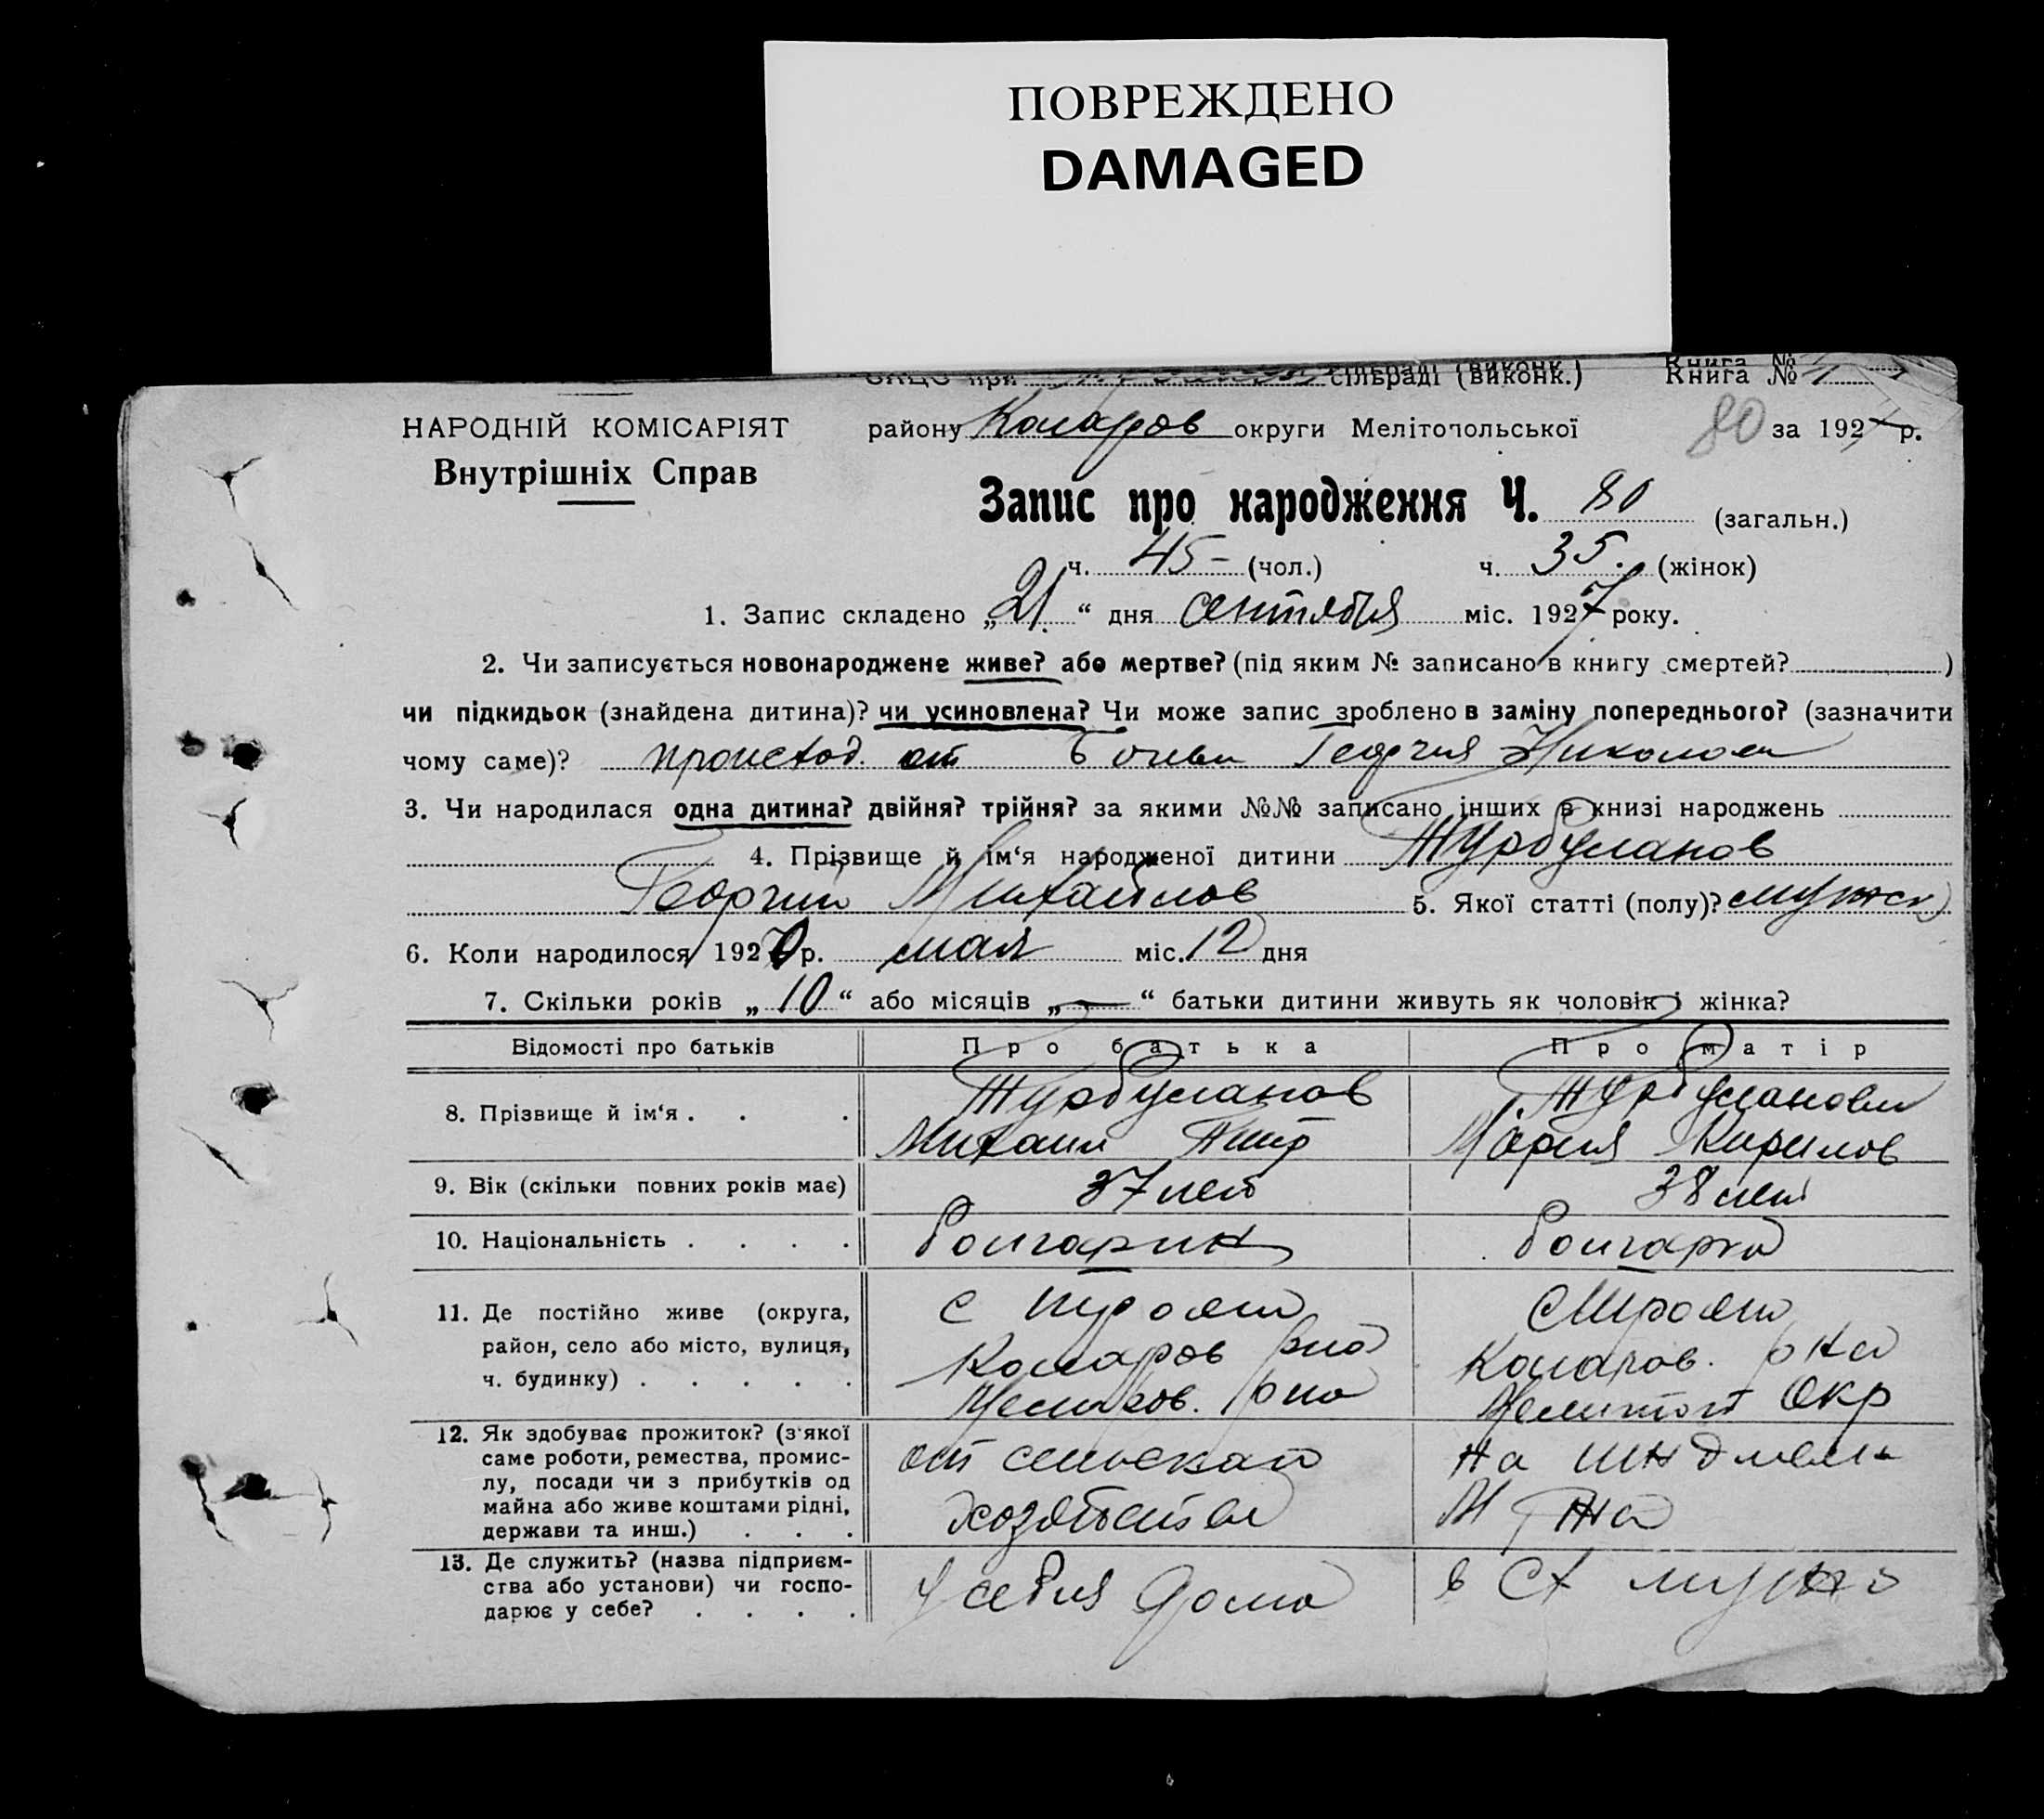 ПОВРЕЖДЕНО
DAMAGED
сільраді (виконк.) Книга №
НАРОДНІЙ КОМІСАРІЯТ
Внутрішніх Справ
району Коларов округи Мелітопольської 80 за 1927 р.
Запис про народження Ч. 80 (загальн.)
ч. 45 – (чол.) ч. 35. (жінок)
1. Запис складено „21.“ дня сентября міс. 1927 року.
2. Чи записується новонароджене живе? або мертве? (під яким № записано в книгу смертей? )
чи підкидьок (знайдена дитина)? чи усиновлена? Чи може запис зроблено в заміну попереднього? (зазначити
чому саме)? происход. от Георгия Николаев
3. Чи народилася одна дитина? двійня? трійня? за якими №№ записано інших в книзі народжень
4. Прізвище й ім‘я народженої дитини Турбуланов
Георгий Михайлов 5. Якої статті (полу)? мужск
6. Коли народилося 192 р. мая міс. 12 дня
7. Скільки років „10“ або місяців „—“ батьки дитини живуть як чоловік і жінка?
Відомості про батьків Про батька Про матір
8. Прізвище й ім‘я . . . Турбуланов Турбуланова
Михаил Петр Мария Кирилов
9. Вік (скільки повних років має) 37 лет 38 лет
10. Національність . . . . Болгарин Болгарка
11. Де постійно живе (округа,
район, село або місто, вулиця,
ч. будинку) . . . . .
с
Коларов рна
с
Коларов. рна
Мелитоп Окр
12. Як здобуває прожиток? (з‘якої
саме роботи, ремества, промис-
лу, посади чи з прибутків од
майна або живе коштами рідні,
держави та инш.) . . .
от сельскаго
хозяйства
на
13. Де служить? (назва підприєм-
ства або установи) чи госпо-
дарює у себе? . . . .
У себя дома
в сх мужа